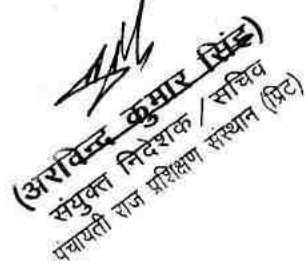 (अरविन्द कुमार सिंह)
संयुक्त निदेशक / सचिव
पंचायती राज प्रशिक्षण संस्थान (प्रिट)